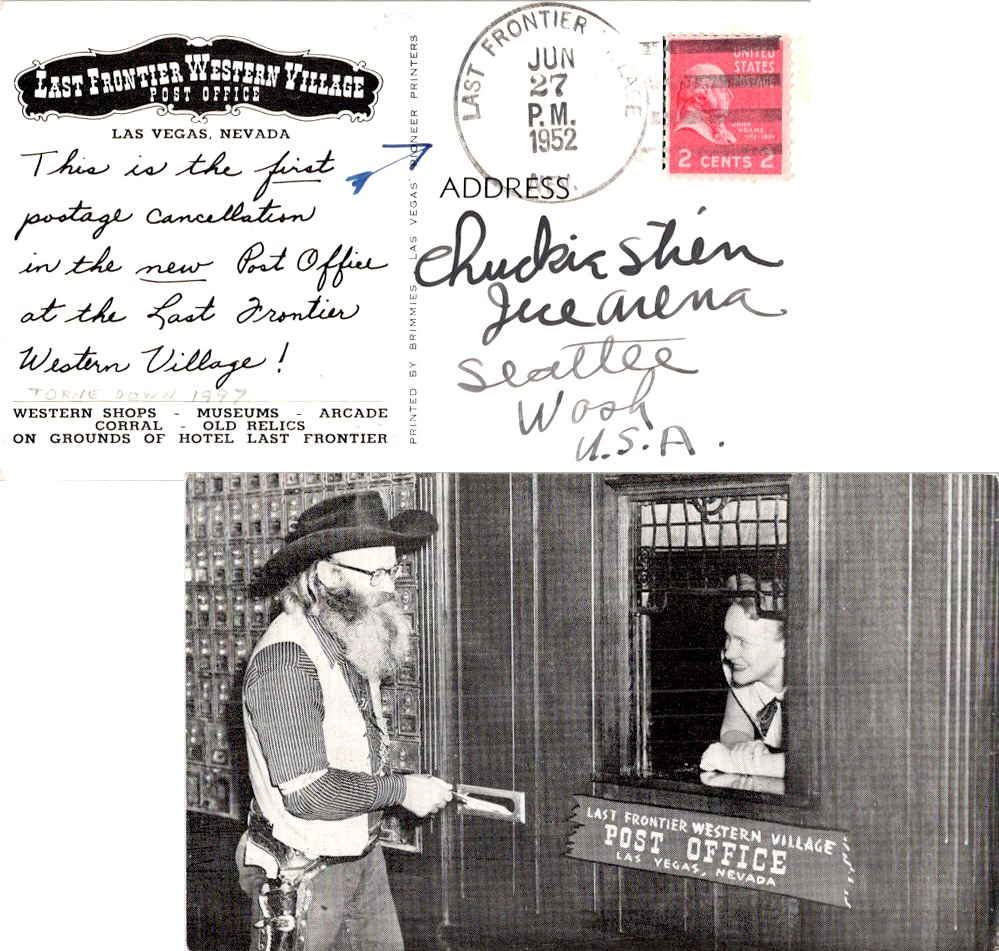 LAST FRONTIER WESTERN VILLAGE
POST OFFICE
LAS VEGAS, NEVADA
This is the first
postage cancellation
in the new Post Office
at the Last Frontier
Western Village!
TORNE DOWN 1997
WESTERN SHOPS - MUSEUMS - ARCADE
CORRAL - OLD RELICS
ON GROUNDS OF HOTEL LAST FRONTIER
PRINTED BY BRIMMIES, LAS VEGAS' PIONEER PRINTERS
LAST FRONTIER
JUN
27
P.M.
1952
NEV.
UNITED
STATES
POSTAGE
JOHN
ADAMS
2 CENTS 2
ADDRESS
Chuckie Stien
Ice arena
Seattle
Wash
U.S.A.
LAST FRONTIER WESTERN VILLAGE
POST OFFICE
LAS VEGAS, NEVADA